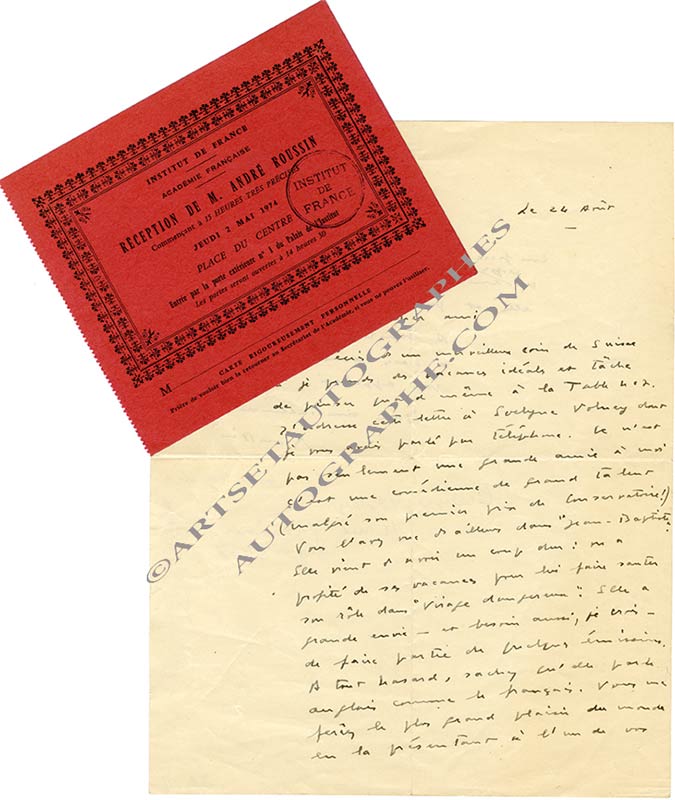 INSTITUT DE FRANCE
ACADÉMIE FRANÇAISE
RÉCEPTION DE M. ANDRÉ ROUSSIN
Commençant à 15 HEURES TRÈS PRÉCISES
JEUDI 2 MAI 1974
PLACE DU CENTRE
Entrée par la porte extérieure n° 1 du Palais de l'Institut
Les portes seront ouvertes à 14 heures 30
INSTITUT
DE
FRANCE
M
CARTE RIGOUREUSEMENT PERSONNELLE
Prière de vouloir bien la retourner au Secrétariat de l'Académie, si vous ne pouvez l'utiliser.
©ARTSETAUTOGRAPHES
AUTOGRAPHE.COM
Le 24 Août
ami
d'un merveilleux coin de Suisse
où je prends des vacances idéales et tâche
de penser quand même à la Table
J'adresse cette lettre à Evelyne Volney dont
je vous avais parlé par téléphone. Ce n'est
pas seulement une grande amie à moi
c'est une comédienne de grand talent
(malgré son premier prix de Conservatoire!)
Vous l'avez vue d'ailleurs dans "Jean-Baptiste
Elle vient d'avoir un coup dur: on a
profité de ses vacances pour lui faire sauter
son rôle dans "Virage dangereux". Elle a
grande envie - et besoin aussi, je crois -
de faire partie de quelques émissions.
A tout hasard, sachez qu'elle parle
anglais comme le français. Vous me
ferez le plus grand plaisir du monde
en la présentant à l'un de vos